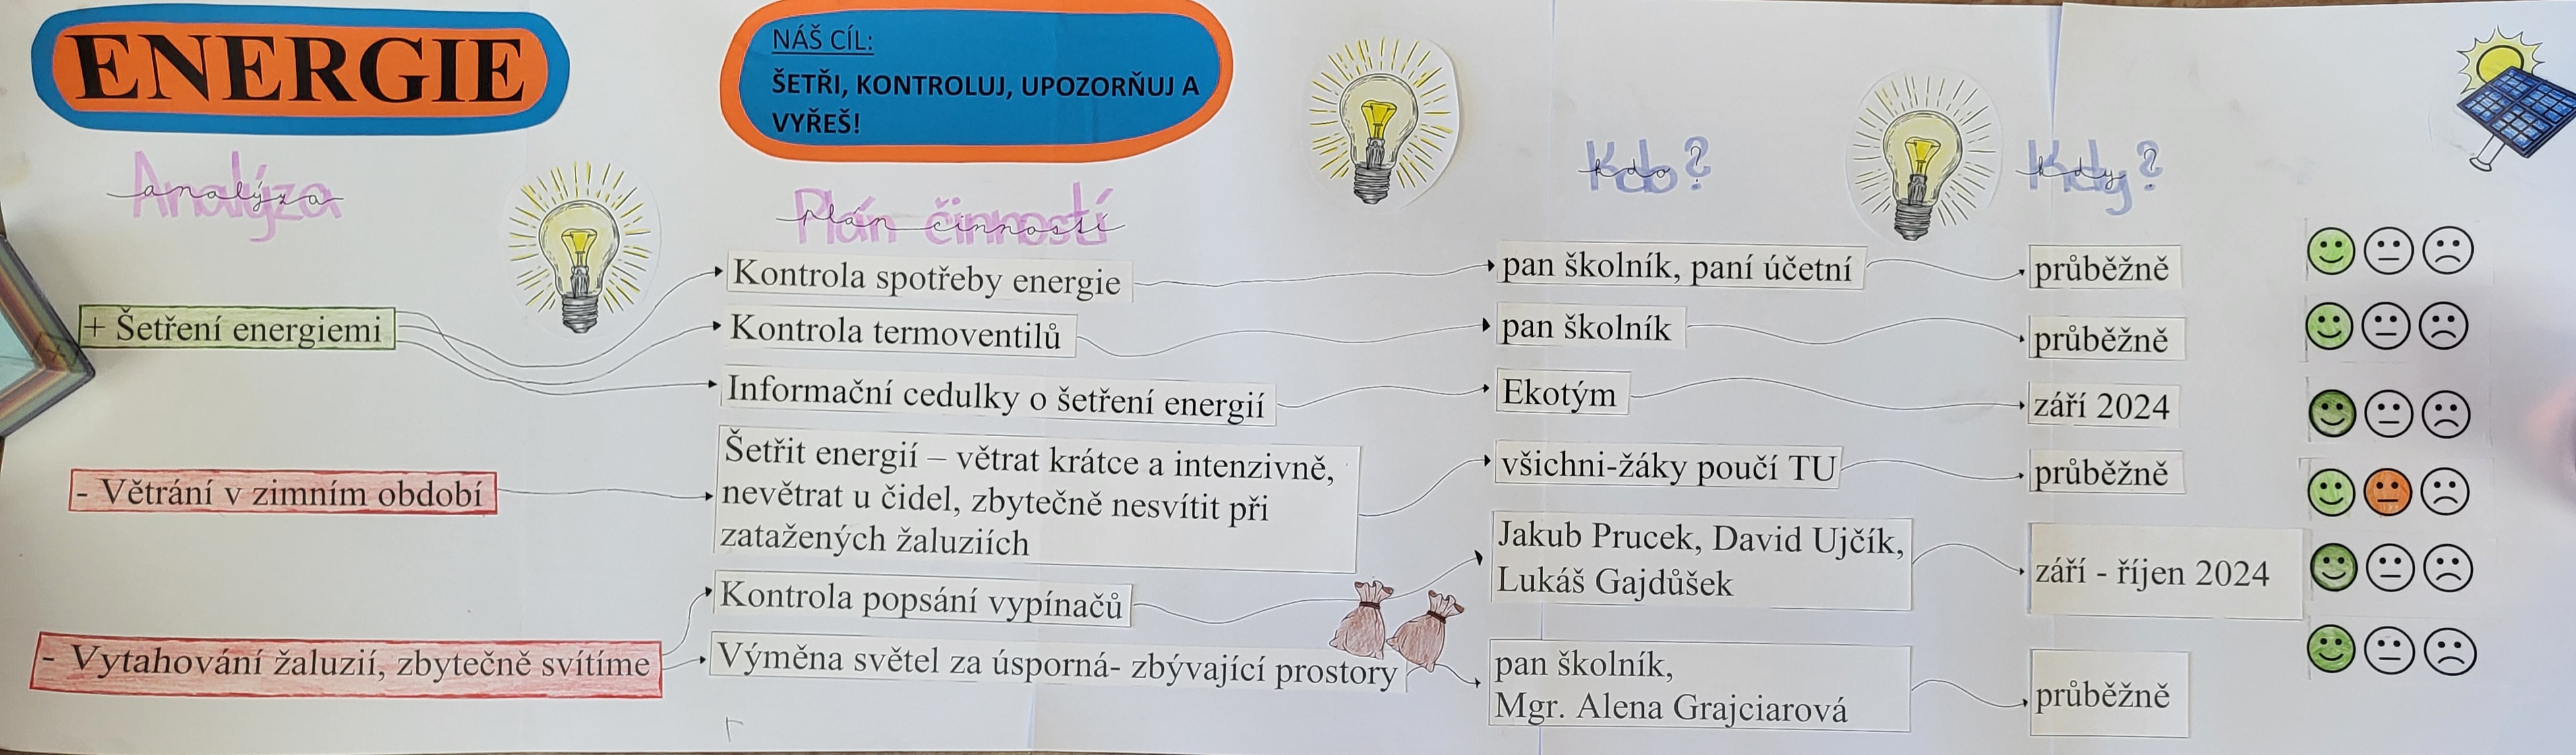 ENERGIE
NÁŠ CÍL:
ŠETŘI, KONTROLUJ, UPOZORŇUJ A
VYŘEŠ!
Analýza
analýza
Plán činností
plán činností
Kdo?
kdo?
Kdy?
kdy?
+ Šetření energiemi
Kontrola spotřeby energie
pan školník, paní účetní
průběžně
Kontrola termoventilů
pan školník
průběžně
Informační cedulky o šetření energií
Ekotým
září 2024
- Větrání v zimním období
Šetřit energií – větrat krátce a intenzivně,
nevětrat u čidel, zbytečně nesvítit při
zatažených žaluziích
všichni-žáky poučí TU
průběžně
- Vytahování žaluzií, zbytečně svítíme
Kontrola popsání vypínačů
Jakub Prucek, David Ujčík,
Lukáš Gajdůšek
září - říjen 2024
Výměna světel za úsporná- zbývající prostory
pan školník,
Mgr. Alena Grajciarová
průběžně